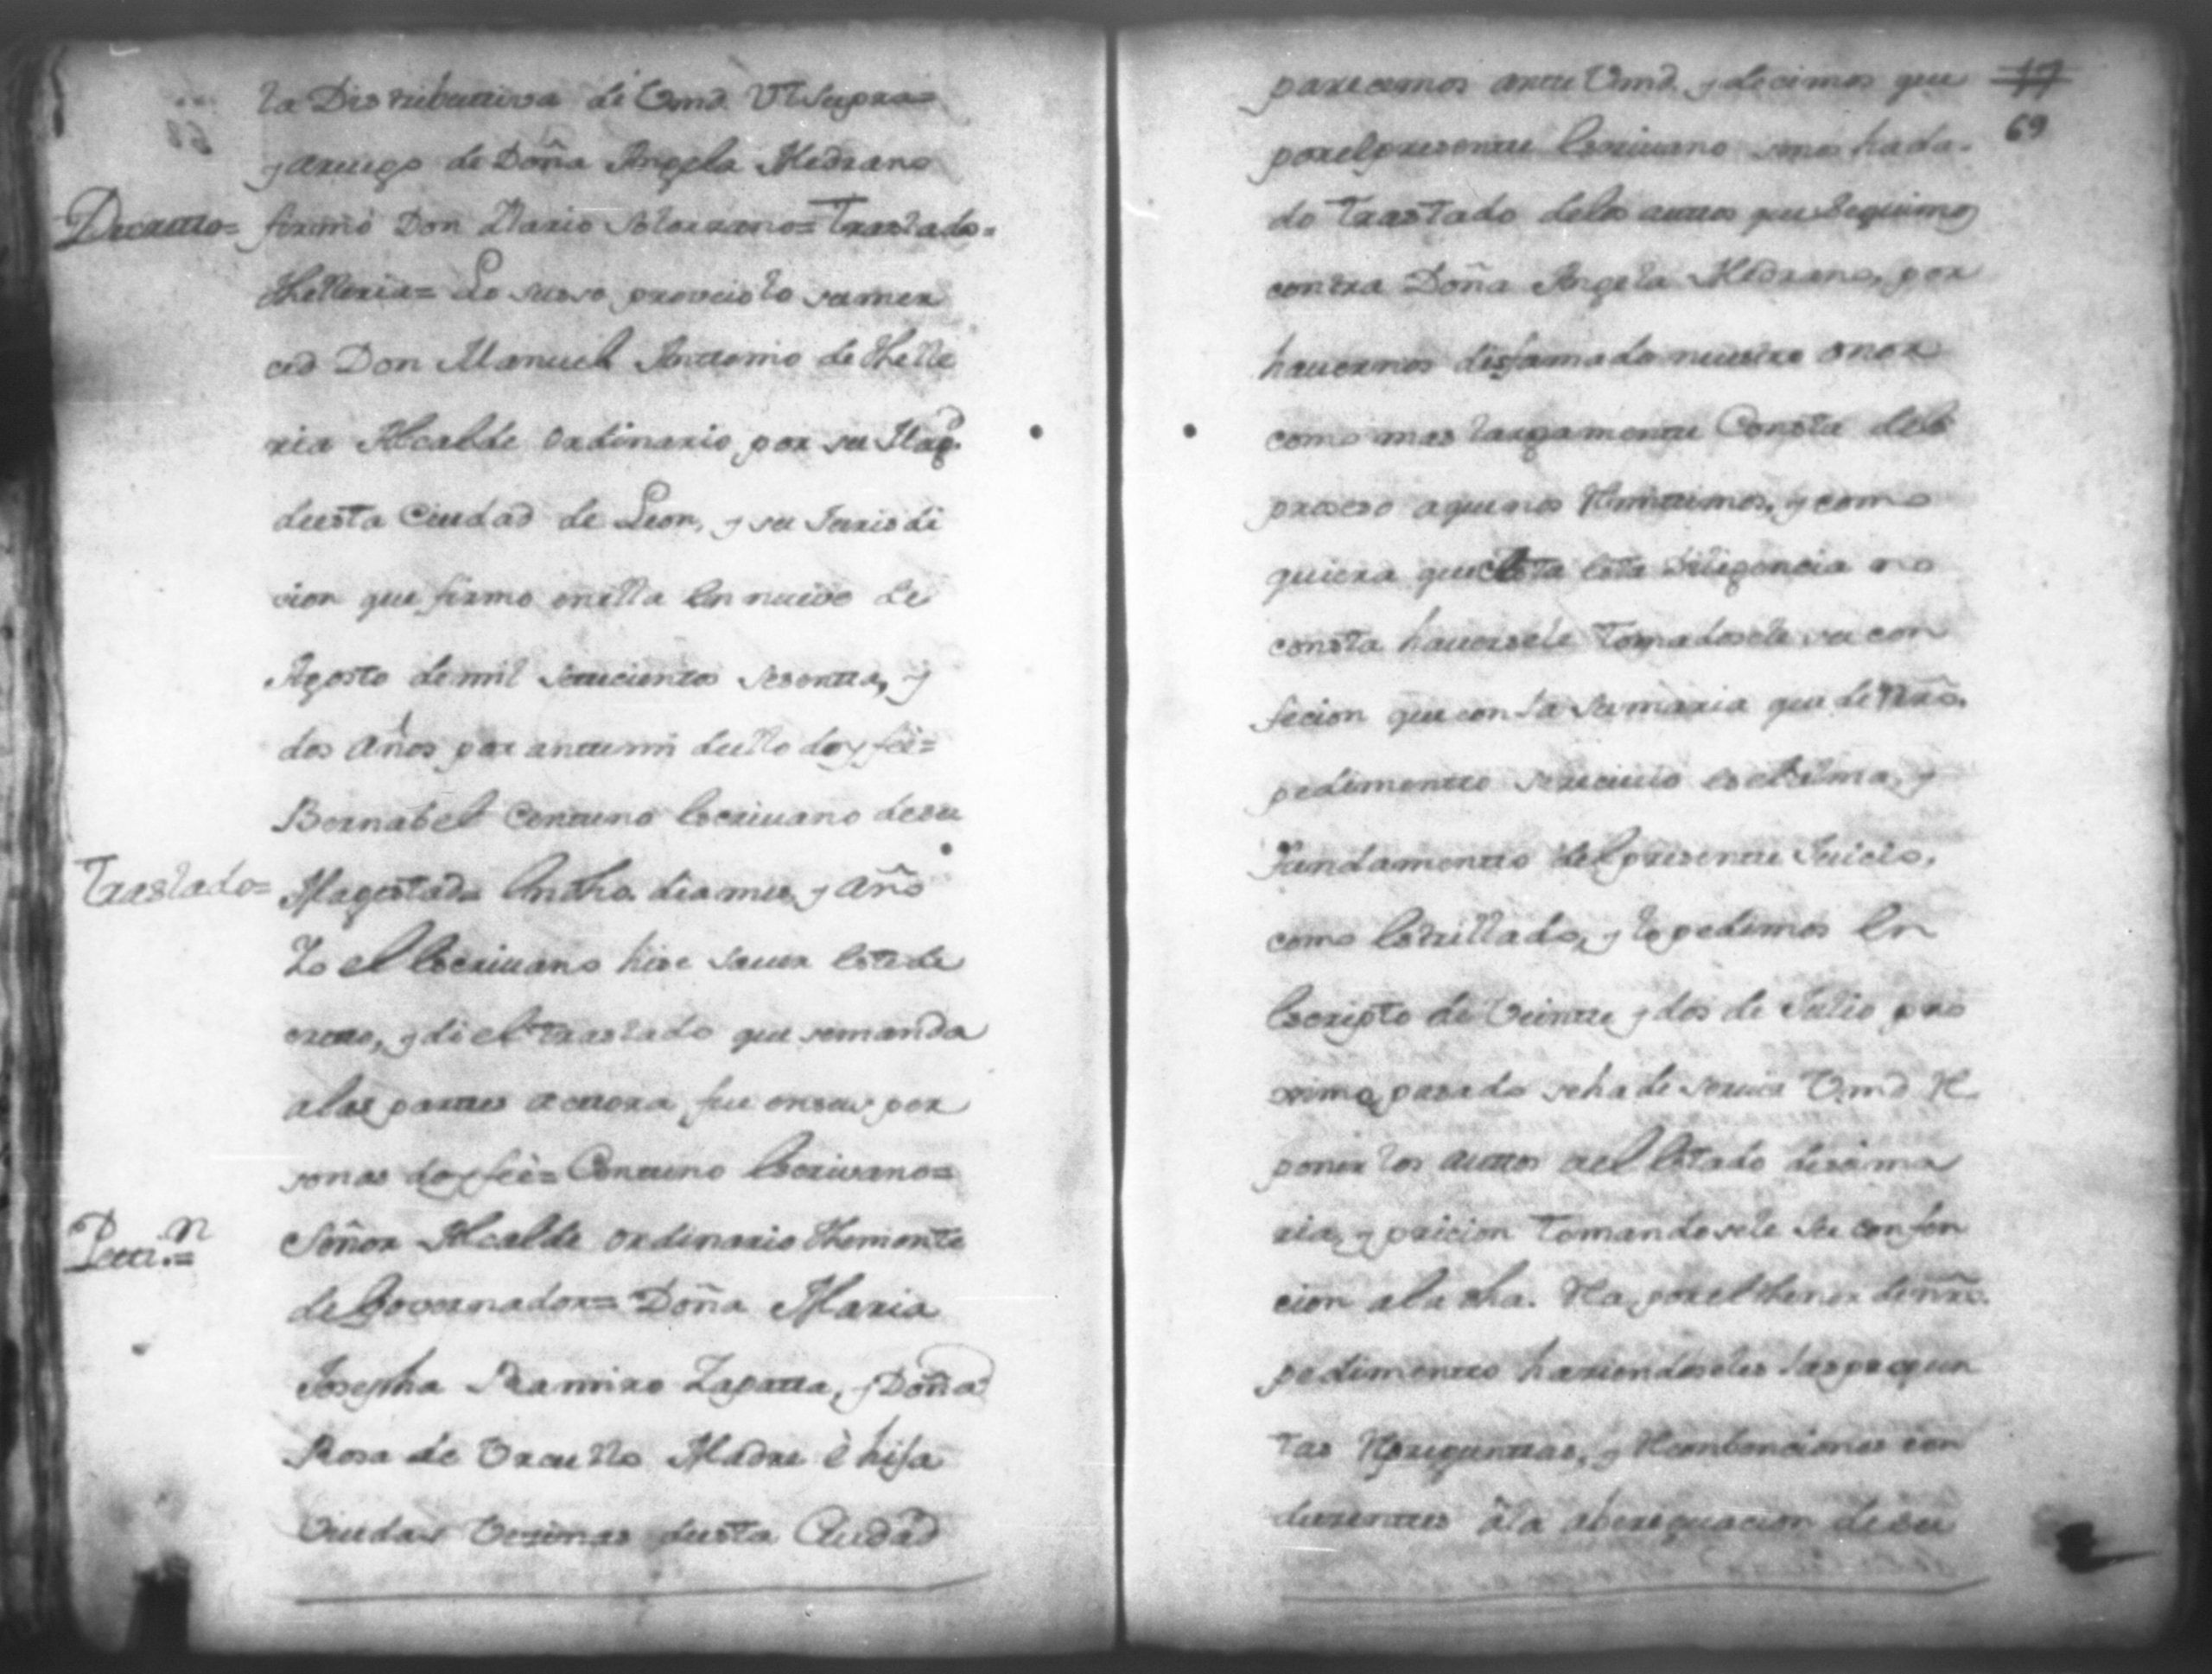 la Distributtiva de Vmd. Vt Supra=
y aruego de Doña Angela Medrano
Decretto= firmó Don Ilario Solorzano= Traslado=
Thelleria= Lo suso proveió lo sumer
ced Don Manuel Anttonio de Thelle
ria Alcalde Ordinario por su Mag.d
deesta Ciudad de Leon, y su Jurisdi
cion que firmo en ella En nueve de
Agosto de mil settecientos sesentta, y
dos años por antte mi de ello doy feè=
Bernabel Centteno Escriuano desu
Traslado= Magestad= En dho. dia mes, y año
Yo el Escriuano hise sauer este de
cretto, y di el traslado que semanda
alas parttes acttora, fue en sus per
sonas doy feè= Centteno Escrivano=
Petti.n= Señor Alcalde Ordinario Theniente
de Governador= Doña Maria
Josepha Ramiro Zapatta, y Doña
Rosa de Orcullo Madre è hija
Viudas Vezinas deesta Ciudad
17
69
parecemos antte Vmd. y decimos que
por el presentte Escriuano senos ha da-
do traslado delos auttos que Seguimos
contra Doña Angela Medrano, por
hauernos disfamado nuestro onor
como mas largamentte Consta delo
proseso aque nos Remittimos, y como
quiera que esta diligencia no
consta hauersele tomadosele su con
fecion que con la sumaria que de nrõ.
pedimentto se reciuio es el alma, y
Fundamentto del presentte Juicio,
como Estrillado, y lo pedimos En
Escripto de Veintte y dos de Julio pro
ximo pasado se ha de seruir Vmd. Re
poner los auttos a el Estado de suma
ria, y pricion tomandosele su confe
cion ala dha. Rea, por el thenor de nrõ.
pedimentto hasiendoseles las pregun
tas Repreguntas, y Reconbenciones con
dusenttes àla aberiguacion de su